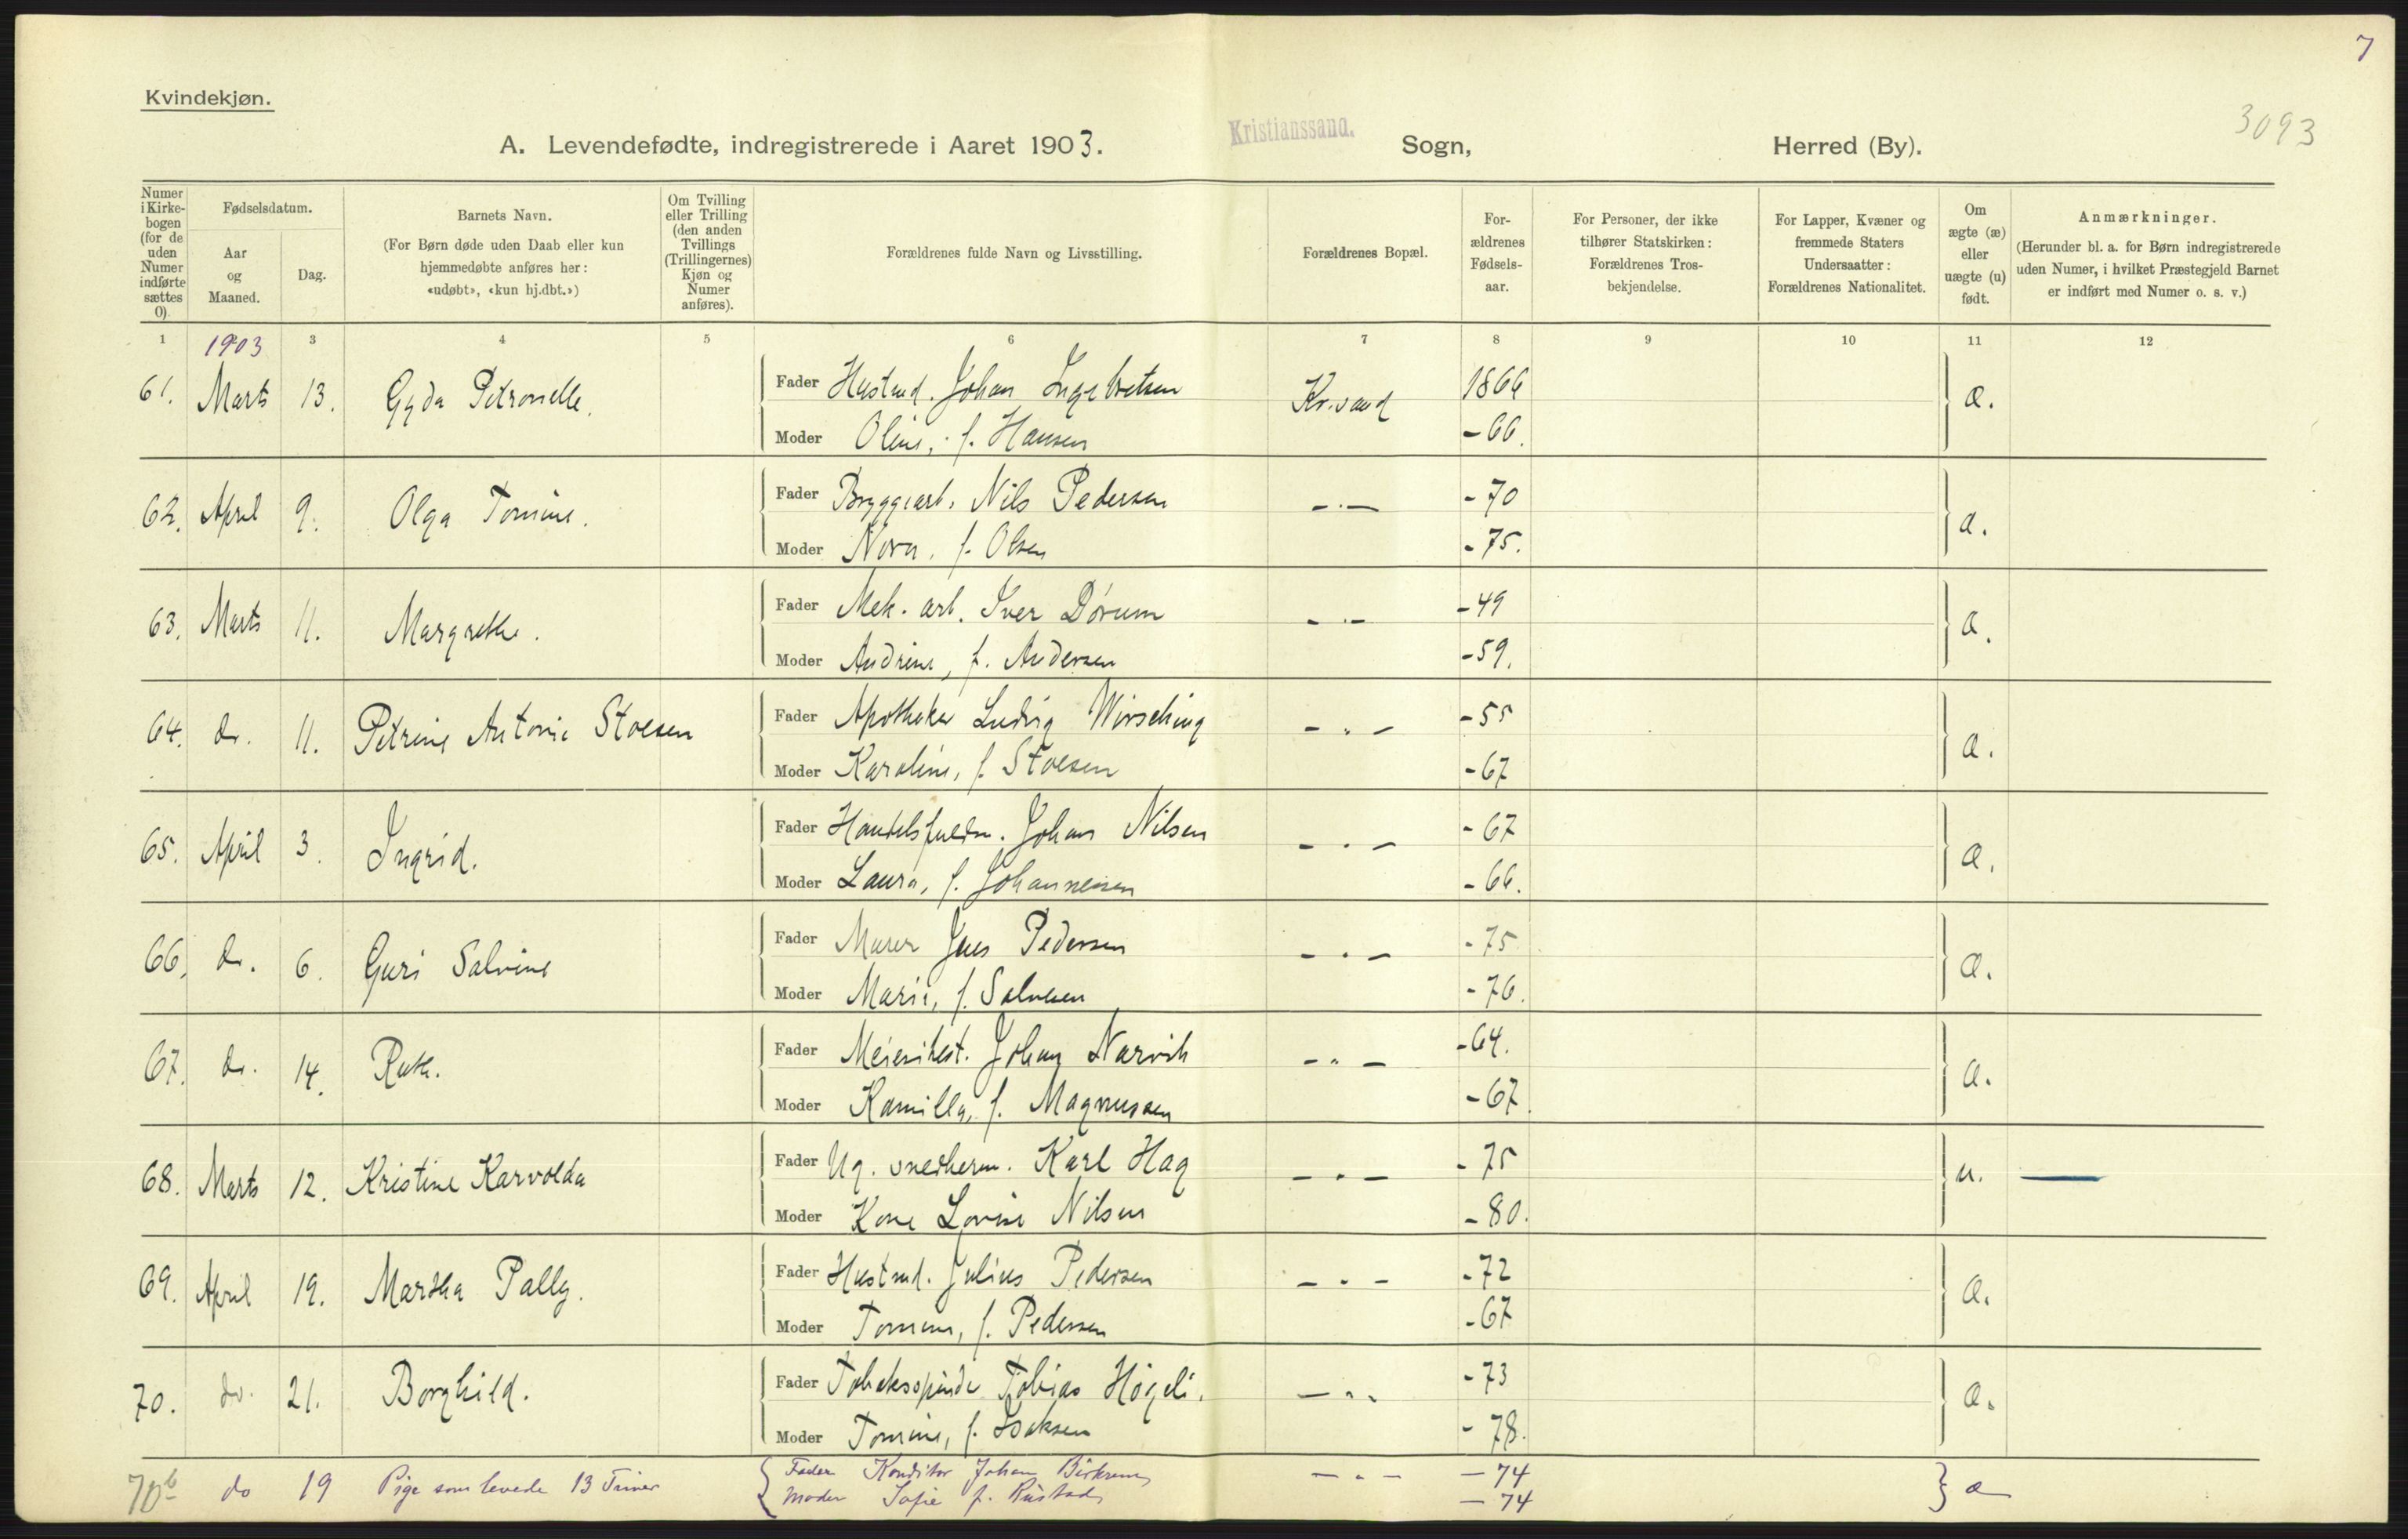 7
Kvindekjøn.
3093
A. Levendefødte, indregistrerede i Aaret 1903. Kristianssand. Sogn, Herred (By).
Numer i Kirkebogen (for de uden Numer indførte sættes 0).
Fødselsdatum.
Aar og Maaned.
Dag.
Barnets Navn.
(For Børn døde uden Daab eller kun hjemmedøbte anføres her: «udøbt», «kun hj.dbt.»)
Om Tvilling eller Trilling (den anden Tvillings (Trillingernes) Kjøn og Numer anføres).
Forældrenes fulde Navn og Livsstilling.
Forældrenes Bopæl.
For-ældrenes Fødsels-aar.
For Personer, der ikke tilhører Statskirken: Forældrenes Tros-bekjendelse.
For Lapper, Kvæner og fremmede Staters Undersaatter: Forældrenes Nationalitet.
Om ægte (æ) eller uægte (u) født.
Anmærkninger.
(Herunder bl. a. for Børn indregistrerede uden Numer, i hvilket Præstegjeld Barnet er indført med Numer o. s. v.)
1 1903 3 4 5 6 7 8 9 10 11 12
61. Marts 13. Gyda Petronelle. Fader Hustmd. Johan Ingebretsen Kr.sand 1866 æ.
Moder Oline, f. Hansen -66.
62. April 9. Olga Tomine. Fader Bryggearb. Nils Pedersen -"- -70 æ.
Moder Nora, f. Olsen -75.
63. Marts 11. Margrethe. Fader Mek. arb. Iver Dørum -"- -49 æ.
Moder Andrine, f. Andersen -59.
64. do. 11. Petrine Antonie Stoesen Fader Apotheker Ludvig Wirsching -"- -55 æ.
Moder Karoline, f. Stoesen -67
65. April 3. Ingrid. Fader Handelsfuldm. Johan Nilsen -"- -67 æ.
Moder Laura, f. Johannesen -66.
66. do. 6. Guri Salvine Fader Murer Jens Pedersen -"- -75 æ.
Moder Marie, f. Salvesen -76.
67. do. 14. Ruth. Fader Meieribest. Johan Narvik -"- -64. æ.
Moder Kamilla, f. Magnussen -67.
68. Marts 12. Kristine Karvolda Fader Ug. snedkerm. Karl Hag -"- -75 u. —
Moder Kone Lovise Nilsen -80.
69. April 19. Martha Pally. Fader Hustmd. Julius Pedersen -"- -72 æ.
Moder Tomine, f. Pedersen -67
70. do. 21. Borghild. Fader Tobaksspinder Tobias Høgeli. -"- -73 æ.
Moder Tomine, f. Isaksen -78.
70b do 19 Pige som levede 13 Timer Fader Konditor Johan Birkrem -"- -74 æ
Moder Sofie f. Rustad -74